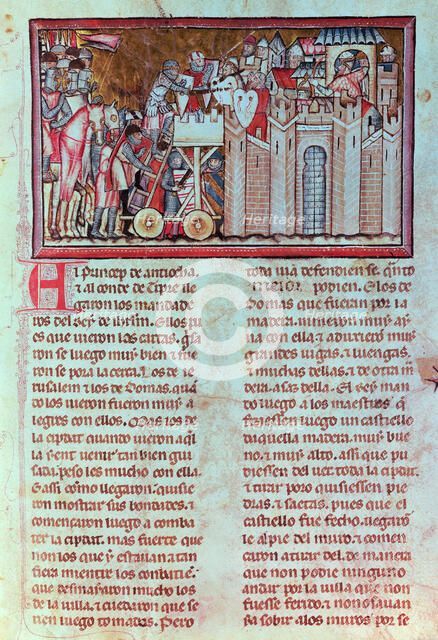 Al princep de antiocha.
⁊ al conde de Triple lle
garon los mandade
ros del Rey de iħrlm. ⁊ los pu
es que uieron las cartas. ꝗ̃sa
ron se luego muy bien ⁊ ime
ron se pora la cerca. ⁊ los de ie
rusalem ⁊ los de domas. quã
do los uieron fueron muy a
legres con ellos. Mas los de
la cipdat quando uieron aq̃
lla gent uenir tan bien gui
sada. peso les mucho con ella.
⁊ assi cõmo llegaron. quisie
ron mostrar sus bondades. ⁊
començaron luego a comba
ter la cipdat. mas fuerte que
non los que y estauan ⁊ tan
fiera mientre los conbatiẽ.
que desmayaron mucho los
de la uilla. ⁊ cuedaron que se
rien luego tomados. Pero
toda uia defendien se quãto
mejor podien. ⁊ los de
domas que fueran por la
madera. uinieron muy ayna
con ella. ⁊ aduxieron muy
grandes uigas. ⁊ luengas.
⁊ muchas dellas. ⁊ de otra m
dera. assaz della. El Rey man
do luego a los maestros q̃
fiziessen luego un castiello
daquella madera. muy bue
no. ⁊ muy alto. assi que pu
diessen del uer toda la cipdat.
⁊ tirar poro quisiessen pie
dras. ⁊ saetas. pues que el
castiello fue fecho. llegarõ
le al pie del muro. ⁊ comen
çaron a tirar del. de manera
que non podie ninguno
andar por la uilla que non
fuesse ferido. ⁊ no osauan
sa sobir a los muros por se
Heritage
Heritage
Heritage
Heritage
Heritage
Heritage